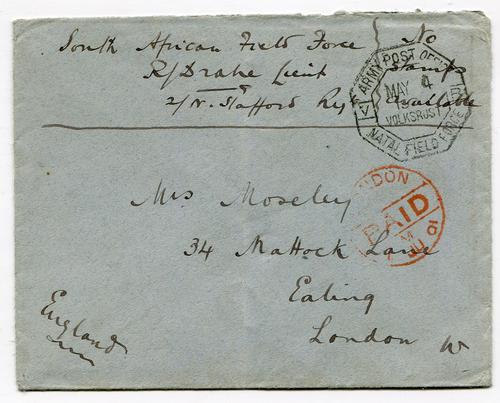 South African Field Force } No
R/Drake Lieut Stamps
2/N. Stafford Rgt available
ARMY POST OFFICE
MAY 4
VOLKSRUST
NATAL FIELD FORCE
Mrs Moseley
LONDON
PAID
34 Mattock Lane
Ealing
England
London W